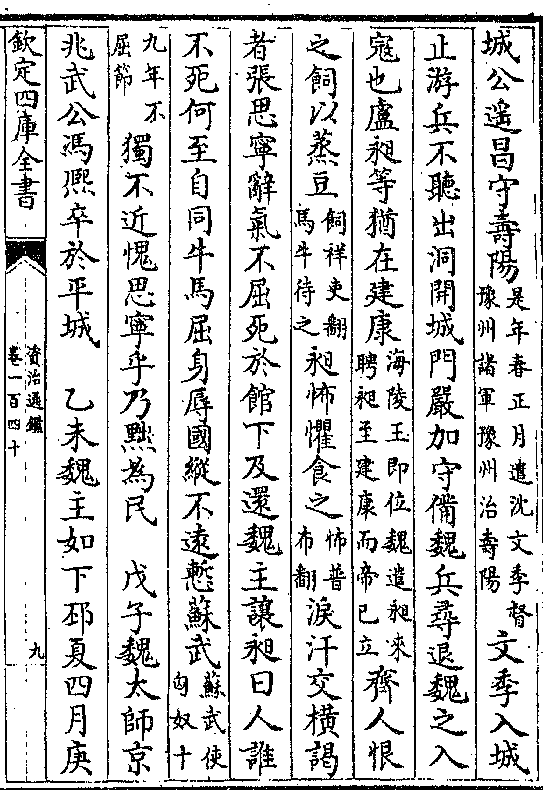 城公遥昌守壽陽是年春正月遣沈文季督豫州諸軍豫州治壽陽文季入城
止游兵不聽出洞開城門嚴加守備魏兵尋退魏之入
宼也盧昶等猶在建康海陵王即位魏遣昶来聘昶至建康而帝已立齊人恨
之飼以蒸豆飼祥吏翻馬牛待之昶怖懼食之怖普布翻淚汗交横謁
者張思寧辭氣不屈死於館下及還魏主讓昶曰人誰
不死何至自同牛馬屈身辱國縱不逺慙蘇武蘇武使匈奴十
九年不屈節獨不近愧思寧乎乃黜為民 戊子魏太師京
兆武公馮熈卒於平城 乙未魏主如下邳夏四月庚
欽定四庫全書
資治通鑑
卷一百四十
九